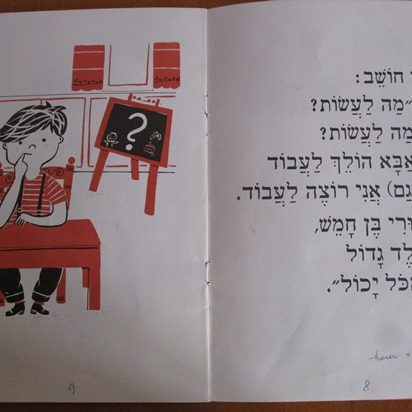 חוֹשֵׁב:
מַה לַעֲשׂוֹת?
מַה לַעֲשׂוֹת?
אַבָּא הוֹלֵךְ לַעֲבוֹד
עַם) אֲנִי רוֹצֶה לַעֲבוֹד.
וּרִי בֶּן חָמֵשׁ,
לֶד גָּדוֹל
הַכֹּל יָכוֹל״.
8
?
9